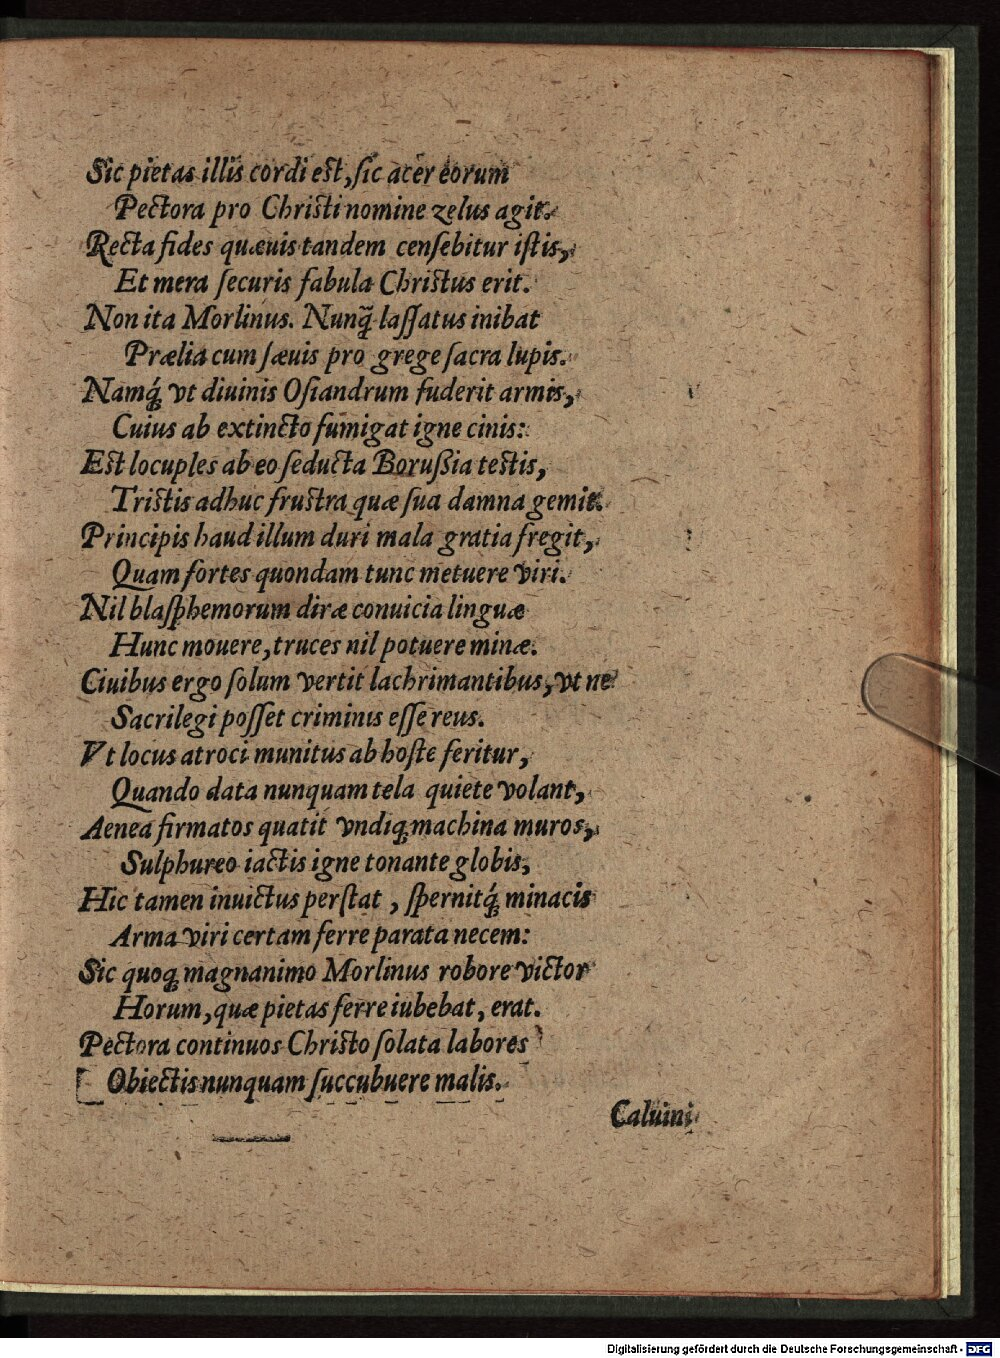 Sic pietas illis cordi est, ſic acer eorum
Pectora pro Christi nomine zelus agit.
Recta fides quæuis tandem cenſebitur iſtis,
Et mera ſecuris fabula Christus erit.
Non ita Morlinus. Nunq̃ laſſatus inibat
Prælia cum ſæuis pro grege ſacra lupis.
Namq́; vt diuinis Oſiandrum fuderit armis,
Cuius ab extincto fumigat igne cinis:
Est locuples ab eo ſeducta Borußia testis,
Tristis adhuc frustra quæ ſua damna gemit.
Principis haud illum duri mala gratia fregit,
Quam fortes quondam tunc metuere viri.
Nil blaſphemorum diræ conuicia linguæ
Hunc mouere, truces nil potuere minæ.
Ciuibus ergo ſolum vertit lachrimantibus, vt ne
Sacrilegi poſſet criminis eſſe reus.
Vt locus atroci munitus ab hoſte feritur,
Quando data nunquam tela quiete volant,
Aenea firmatos quatit vndiq; machina muros,
Sulphureo iactis igne tonante globis,
Hic tamen inuictus perſtat, ſpernitq́; minacis
Arma viri certam ferre parata necem:
Sic quoq; magnanimo Morlinus robore victor
Horum, quæ pietas ferre iubebat, erat.
Pectora continuos Christo ſolata labores
Obiectis nunquam ſuccubuere malis.
Caluini
Digitalisierung gefördert durch die Deutsche Forschungsgemeinschaft - DFG